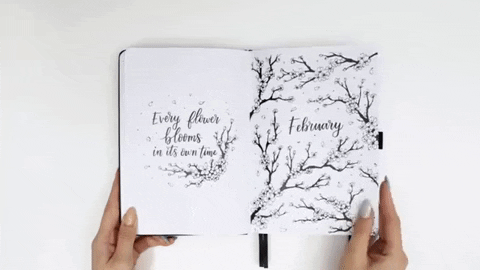 Every flower
blooms
in its own time
February